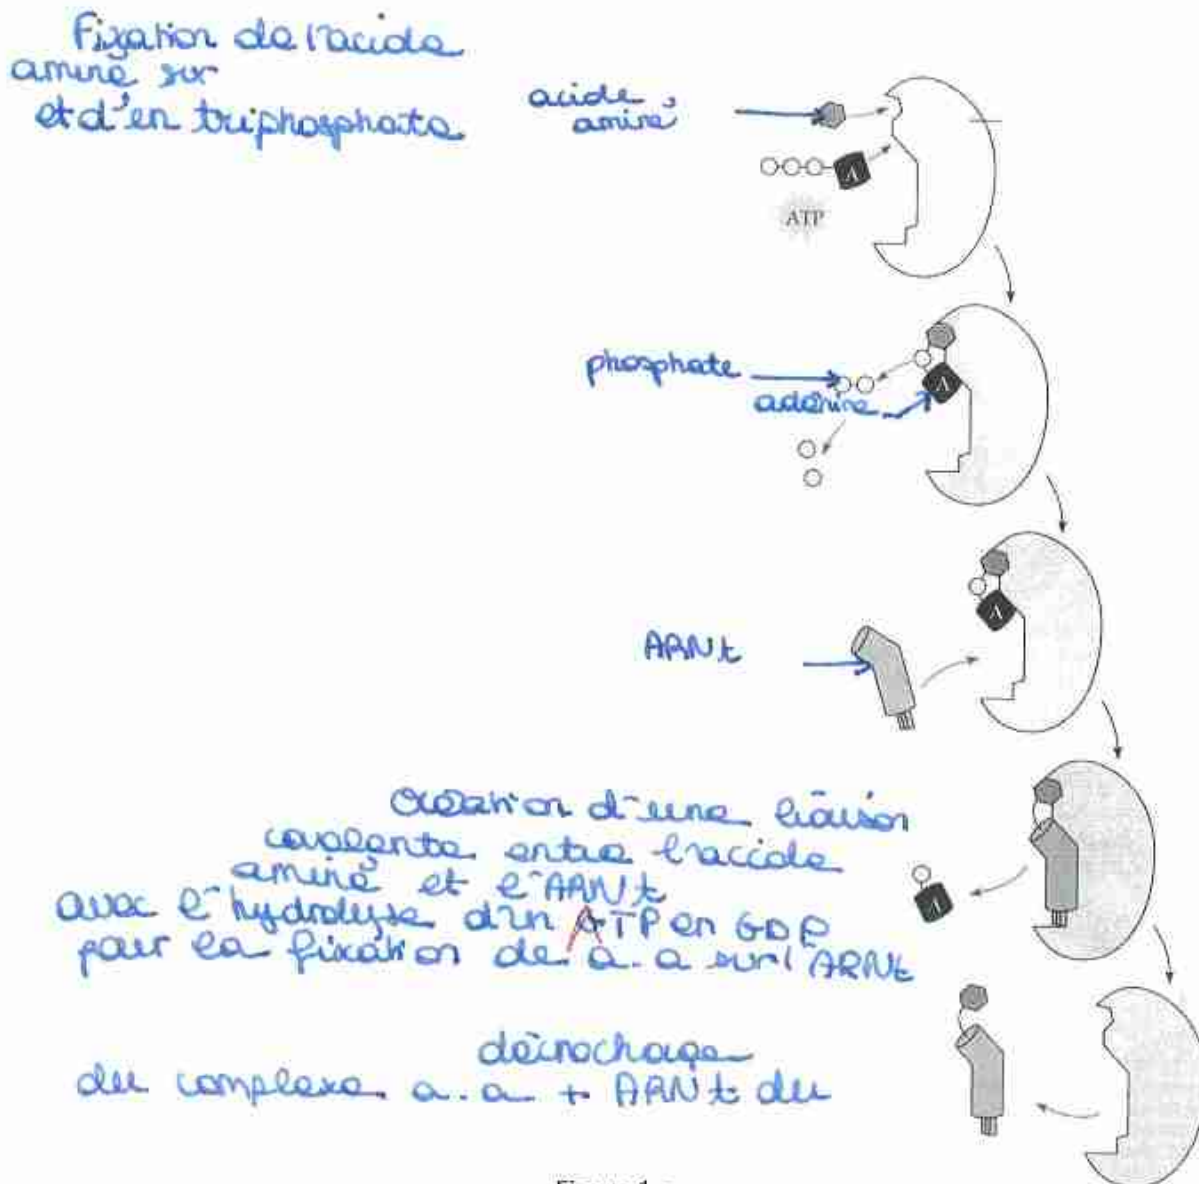 Fixation de l'acide
aminé sur
et d'un triphosphate
acide
aminé
ATP
A
phosphate
adénine
A
A
ARNt
Création d'une liaison
covalente entre l'accide
aminé et l'ARNt
avec l'hydrolyse d'un ATP en GDP
pour la fixation de a.a sur l'ARNt
A
décrochage
du complexe a.a + ARNt du